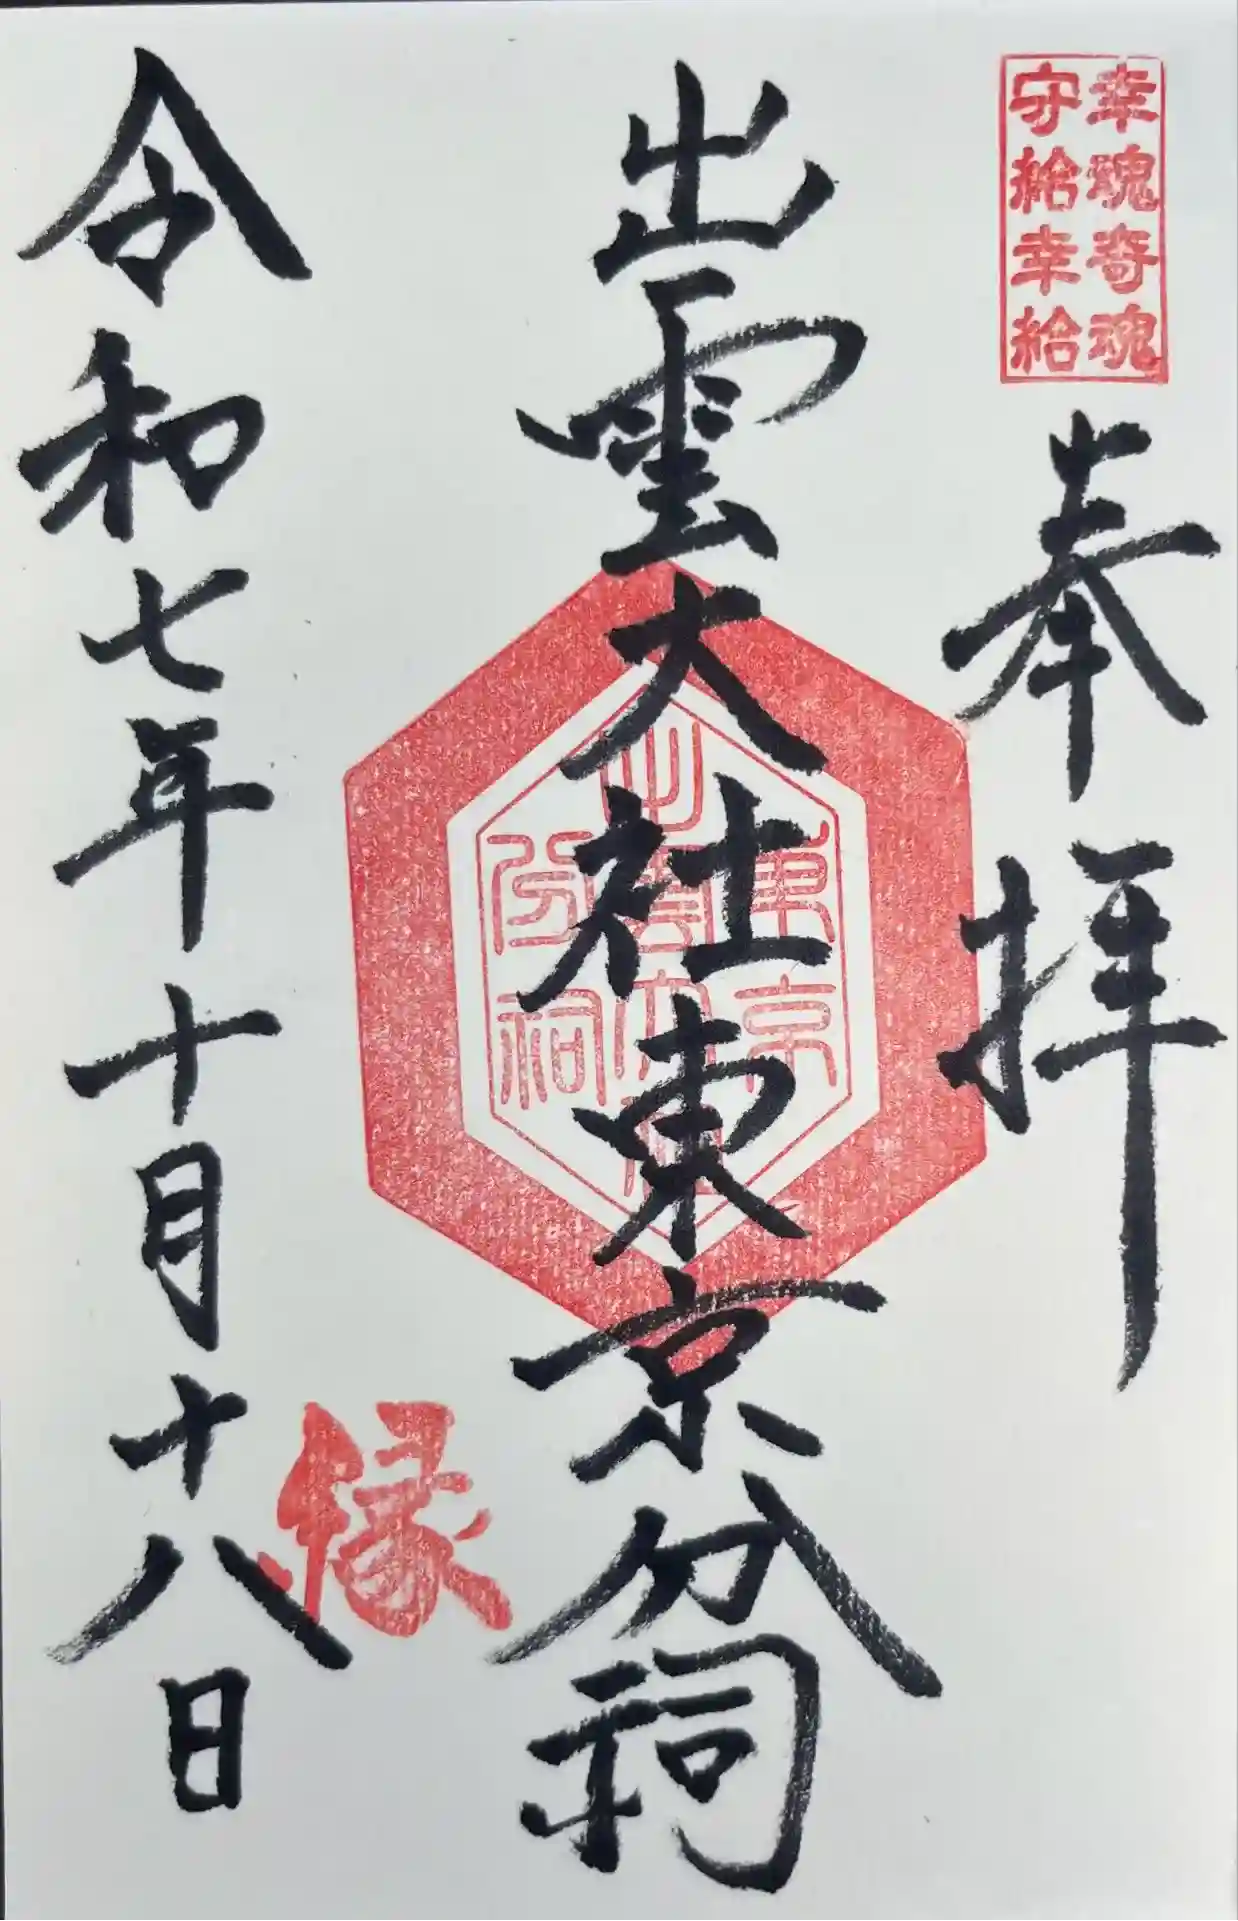 幸魂奇魂
守給幸給
奉拝
出雲大社東京分祠
東京
出雲大社
分祠
縁
令和七年十月十八日